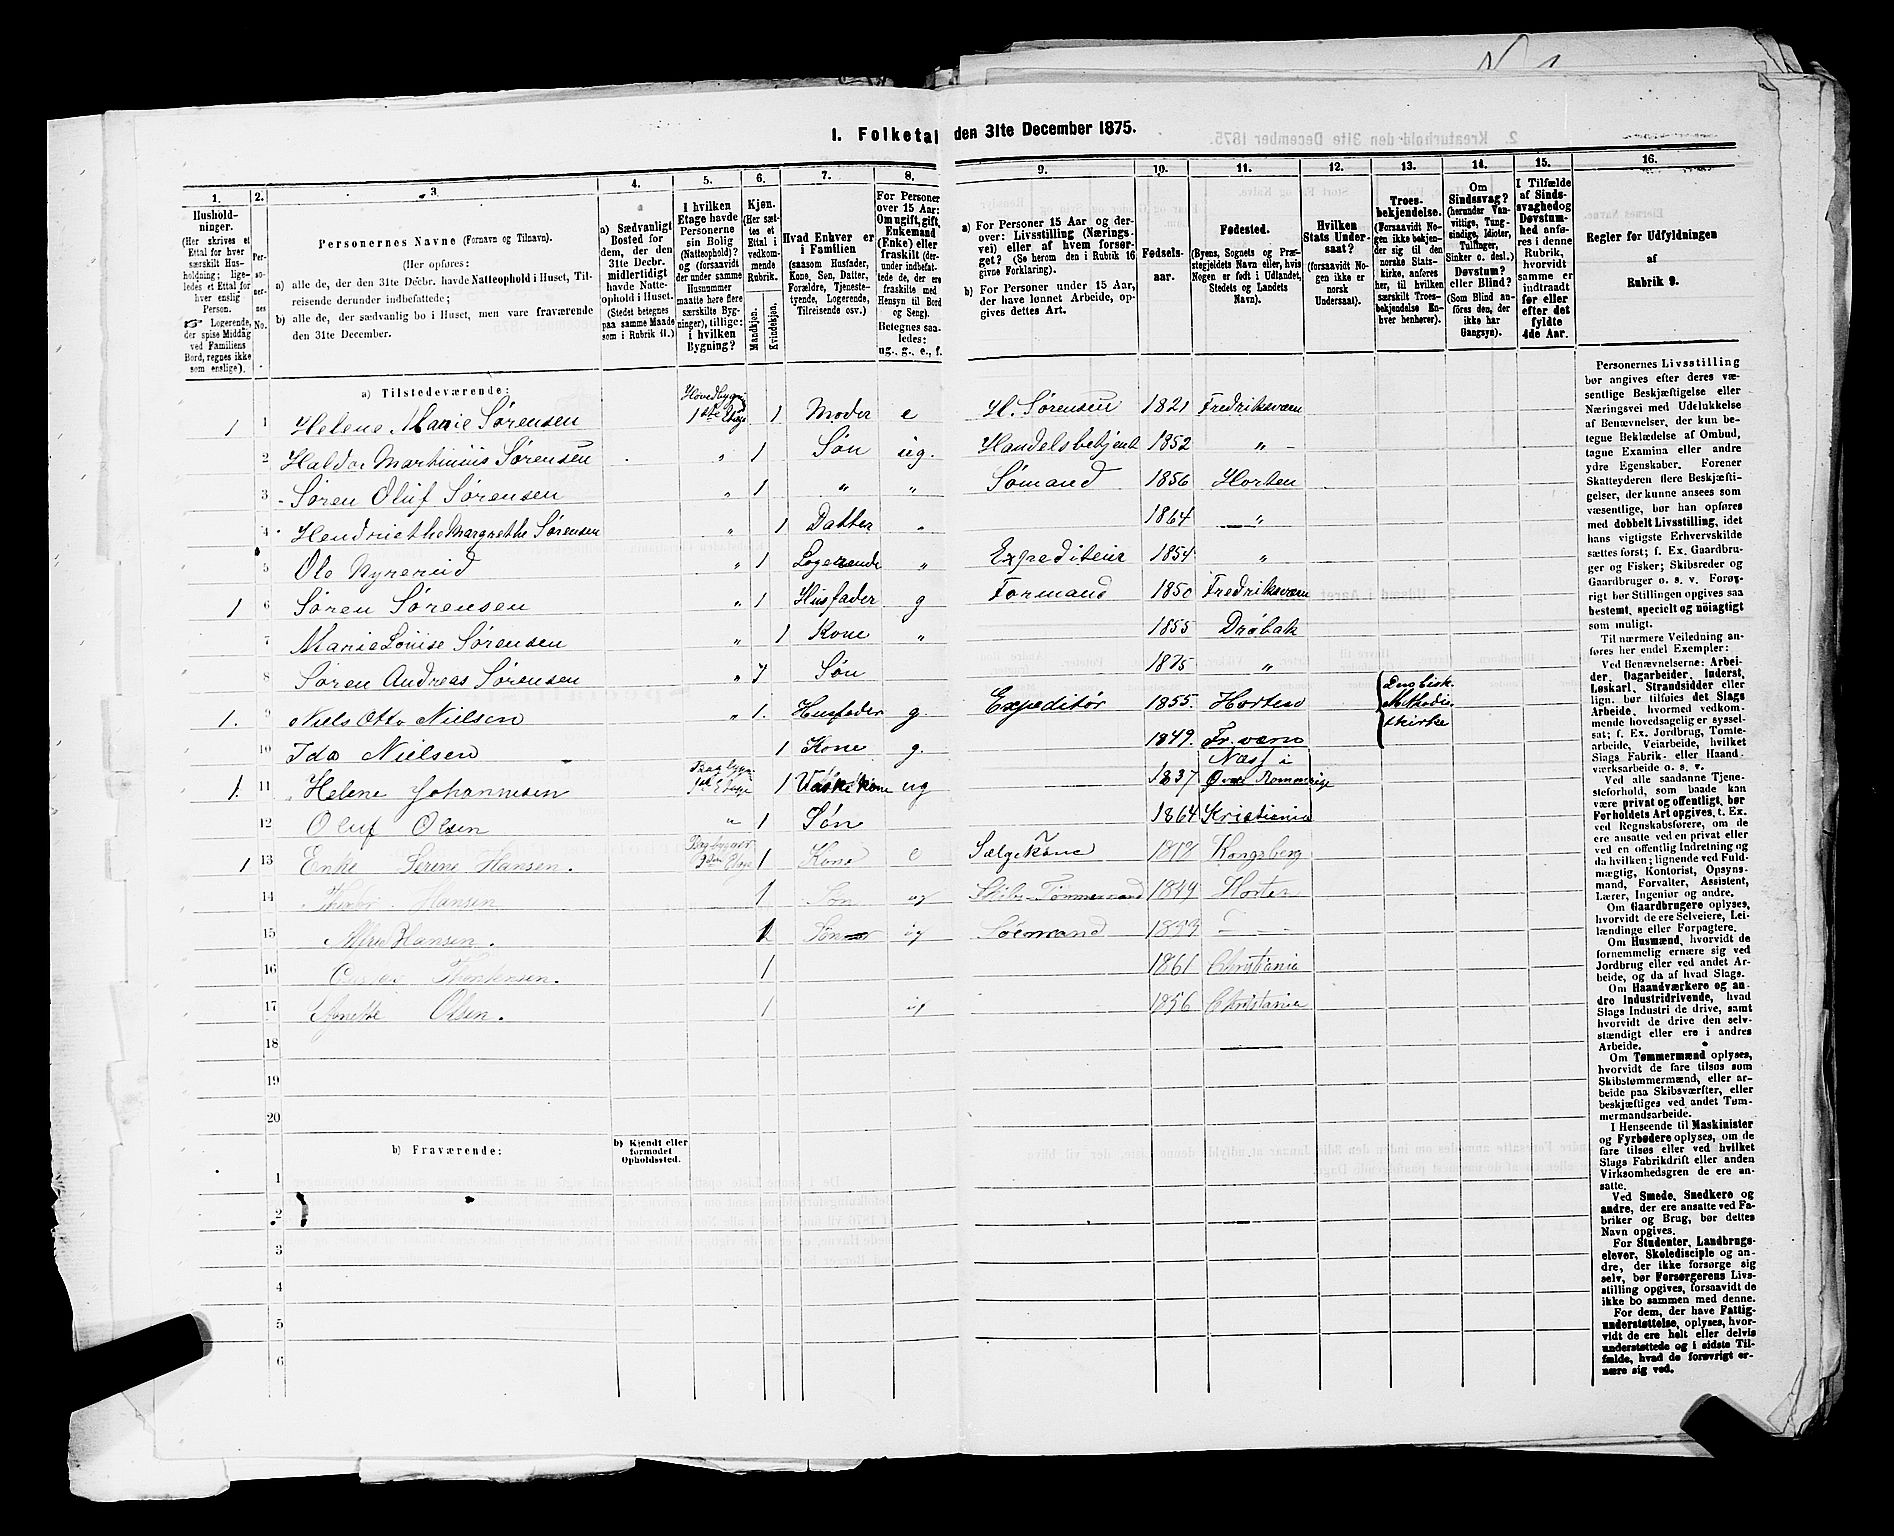 1. Folketal den 31te December 1875.
1. 2. 3. 4. 5. 6. 7. 8. 9. 10. 11. 12. 13. 14. 15. 16.
Husholdninger. (Her skrives et Ettal for hver særskilt Husholdning; ligeledes et Ettal for hver enslig Person. ☞ Logerende, der spise Middag ved Familiens Bord, regnes ikke som enslige).
Personernes No.
Personernes Navne (Fornavn og Tilnavn).
(Her opføres:
a) alle de, der den 31te Decbr. havde Natteophold i Huset, Tilreisende derunder indbefattede;
b) alle de, der sædvanlig bo i Huset, men vare fraværende den 31te December.
a) Sædvanligt Bosted for dem, der den 31te Decbr. midlertidigt havde Natteophold i Huset. (Stedet betegnes paa samme Maade som i Rubrik 11.)
I hvilken Etage havde Personerne sin Bolig (Natteophold)? og (forsaavidt der under samme Husnummer maatte høre flere særskilte Bygninger), tillige: i hvilken Bygning?
Kjøn. (Her sættes et Ettal i vedkommende Rubrik.
Mandkjøn. Kvindekjøn.
Hvad Enhver er i Familien (saasom Husfader, Kone, Søn, Datter, Forældre, Tjenestetyende, Logerende, Tilreisende osv.)
For Personer over 15 Aar: Om ugift, gift, Enkemand (Enke) eller fraskilt (derunder indbefattede de, der ere fraskilte med Hensyn til Bord og Seng). Betegnes saaledes: ug., g., e., f.
a) For Personer 15 Aar og derover: Livsstilling (Næringsvei) eller af hvem forsørget? (Se herom den i Rubrik 16 givne Forklaring).
b) For Personer under 15 Aar, der have lønnet Arbeide, opgives dettes Art.
Fødselsaar.
Fødested. (Byens, Sognets og Præstegjeldets Navn eller, hvis Nogen er født i Udlandet, Stedets og Landets Navn).
Hvilken Stats Undersaat? (forsaavidt Nogen ikke er norsk Undersaat).
Troesbekjendelse. (Forsaavidt Nogen ikke bekjender sig til den norske Statskirke, anføres her, til hvilken særskilt Troesbekjendelse Enhver henhører).
Om Sindssvag? (herunder Vanvittige, Tungsindige, Idioter, Tulfinger, Sinker o. desl.) Døvstum? eller Blind? (Som Blind anføres den, der ikke har Gangsyn).
I Tilfælde af Sindssvaghed og Døvstumhed anføres i denne Rubrik, hvorvidt samme er indtraadt før eller efter det fyldte 4de Aar.
Regler for Udfyldningen af Rubrik 9.
a) Tilstedeværende:
1 1 Helene Marie Sørensen Hovedbygn 1ste Etage 1 Moder e H. Sørensen 1821 Fredriksværn
2 Haldor Martinius Sørensen „ 1 Søn ug. Handelsbetjent 1852 „
3 Søren Oluf Sørensen „ 1 „ „ Sømand 1856 Horten
4 Hendriethe Margrethe Sørensen „ 1 Datter „ 1864 „
5 Ole „ 1 Logerende „ Expediteur 1854 „
1 6 Søren Sørensen „ 1 Husfader g Formand 1850 Fredriksværn
7 Marie Louise Sørensen „ 1 Kone „ 1855 Drøbak
8 Søren Andreas Sørensen „ 1 Søn 1875 „
1. 9 Niels Otto Nielsen „ 1. Husfader g. Expeditør 1855. Horten Methodistkirke
10 Ida Nielsen 1 Kone g. 1849. Fr.værn
1. 11 Helene Johannesen Bagbygn. 1ste Etage 1 Vaskekone ug 1837 Næs i Øvre Romerige
12 Oluf Olsen „ 1 Søn 1864 Kristiania
1 13 Enke Serene Hansen. 1 Kone e Sælgekone 1818 Kongsberg
14 Hansen 1 Søn ug Skibs-Tømmermand 1849 Horten
15 Hansen. 1 Søn ug Sømand
16 1 1861 Christiania
17 Olsen. 1 ug 1856 Christania
18
19
20
b) Fraværende:
b) Kjendt eller formodet Opholdssted.
1
2
3
4
5
6
Personernes Livsstilling
bør angives efter deres væ-
sentlige Beskjæftigelse eller
Næringsvei med Udelukkelse
af Benævnelser, der kun be-
tegne Beklædelse af Ombud,
tagne Examina eller andre
ydre Egenskaber. Forener
Skatteyderen flere Beskjæfti-
gelser, der kunne ansees som
væsentlige, bør han opføres
med dobbelt Livsstilling, idet
hans vigtigste Erhvervskilde
sættes først; f. Ex. Gaardbru-
ger og Fisker; Skibsreder og
Gaardbruger o. s. v. Forøv-
rigt bør Stillingen opgives saa
bestemt, specielt og nöiagtigt
som muligt.
Til nærmere Veiledning an-
føres her endel Exempler:
Ved Benævnelserne: Arbei-
der, Dagarbeider, Inderst,
Løskarl, Strandsidder eller
lign. bør tilføies det Slags
Arbeide, hvormed vedkom-
mende hovedsagelig er syssel-
sat; f. Ex. Jordbrug, Tomte-
arbeide, Veiarbeide, hvilket
Slags Fabrik- eller Haand-
værksarbeide o. s. v.
Ved alle saadanne Tjene-
steforhold, som baade kan
være privat og offentligt, bør
Forholdets Art opgives, t. Ex.
ved Regnskabsførere, om de
ere ansatte ved en privat eller
ved en offentlig Indretning og
da hvilken; lignende ved Fuld-
mægtig, Kontorist, Opsyns-
mand, Forvalter, Assistent,
Lærer, Ingeniør og andre.
Om Gaardbrugere oplyses,
hvorvidt de ere Selveiere, Lei-
lændinge eller Forpagtere.
Om Husmænd, hvorvidt de
fornemmelig ernære sig ved
Jordbrug eller ved andet Ar-
beide, og da af hvad Slags.
Om Haandværkere og an-
dre Industridrivende, hvad
Slags Industri de drive, samt
hvorvidt de drive den selv-
stændigt eller ere i andres
Arbeide.
Om Tømmermænd oplyses,
hvorvidt de fare tilsøs som
Skibstømmermænd, eller ar-
beide paa Skibsværfter, eller
beskjæftiges ved andet Tøm-
mermandsarbeide.
I Henseende til Maskinister
og Fyrbødere oplyses, om de
fare tilsøs eller ved hvilket
Slags Fabrikdrift eller anden
Virksomhedsgren de ere an-
satte.
Ved Smede, Snedkere og
andre, der ere ansatte ved Fa-
briker og Brug, bør dettes
Navn opgives.
For Studenter, Landbrugs-
elever, Skoledisciple og an-
dre, der ikke forsørge sig
selv, bør Forsørgerens Livs-
stilling opgives, forsaavidt de
ikke bo sammen med denne.
For dem, der have Fattig-
understøttelse, oplyses, hvor-
vidt de ere helt eller delvis
understøttede og i sidste Til-
fælde, hvad de forøvrigt er-
nære sig ved.